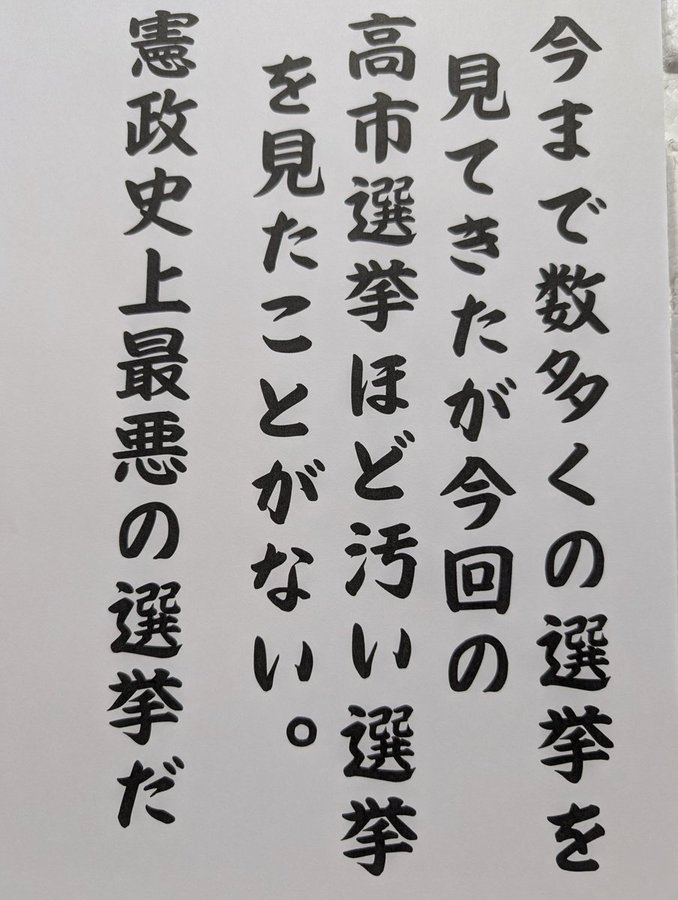 今まで数多くの選挙を
見てきたが今回の
高市選挙ほど汚い選挙
を見たことがない。
憲政史上最悪の選挙だ